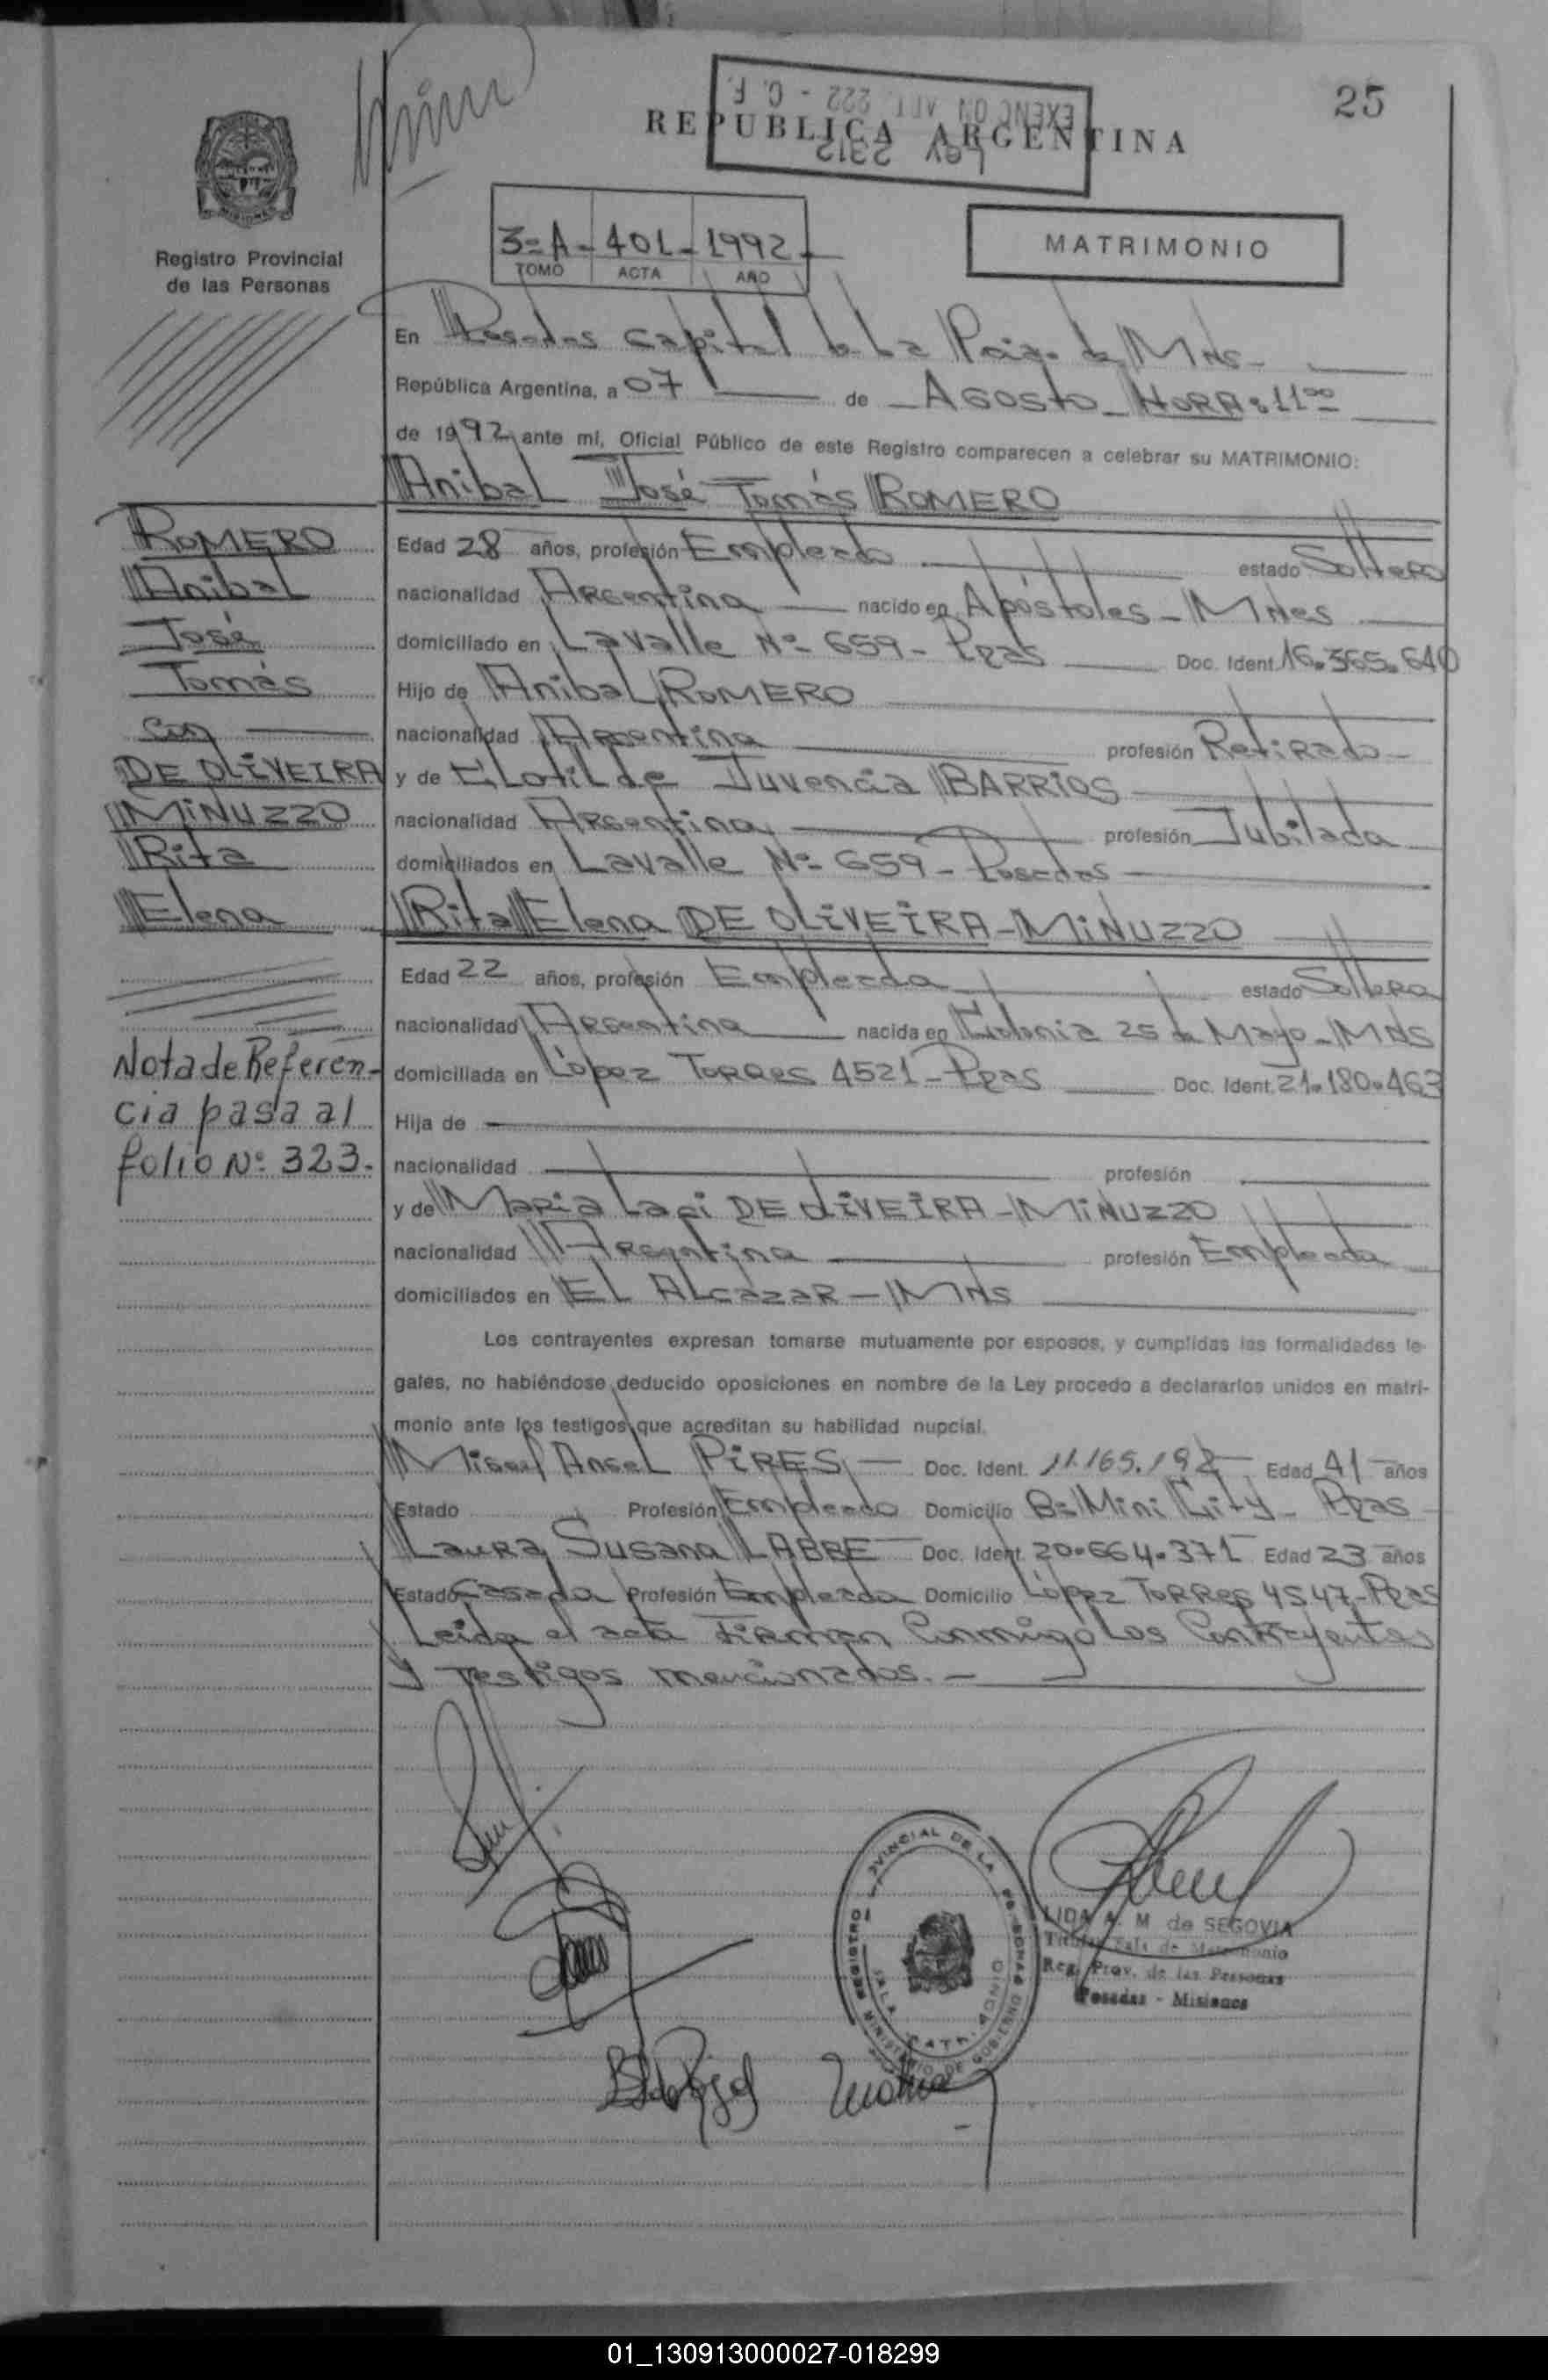 25
REPUBLICA ARGENTINA
EXENC ON ART. 222 - C. F.
Ley 2312
Registro Provincial
de las Personas
3=A - 401 - 1992 -
TOMO ACTA AÑO
MATRIMONIO
En Posadas Capital de La Pcia. de Mnes-
República Argentina, a 07 de AGosto - HORA: 11 00
de 1992 ante mí, Oficial Público de este Registro comparecen a celebrar su MATRIMONIO:
Anibal José Tomás ROMERO
Edad 28 años, profesión Empleado estado Soltero
nacionalidad Argentina nacido en Apóstoles - Mnes
domiciliado en Lavalle Nº 659 - Pdas Doc. Ident. 16.365.640
Hijo de Anibal ROMERO
nacionalidad Argentina profesión Retirado -
y de Clotilde Juvencia BARRIOS
nacionalidad Argentina profesión Jubilada
domiciliados en Lavalle Nº 659 - Posadas
Rita Elena DE OLIVEIRA - MINUZZO
Edad 22 años, profesión Empleada estado Soltera
nacionalidad Argentina nacida en Colonia 25 de Mayo - Mns
domiciliada en López Torres 4521 - Pdas Doc. Ident. 21.180.463
Hija de
nacionalidad profesión
y de Maria Laci DE OLIVEIRA - MINUZZO
nacionalidad Argentina profesión Empleada
domiciliados en EL ALcazaR - Mns
Los contrayentes expresan tomarse mutuamente por esposos, y cumplidas las formalidades le-
gales, no habiéndose deducido oposiciones en nombre de la Ley procedo a declararlos unidos en matri-
monio ante los testigos que acreditan su habilidad nupcial.
Miguel Angel PIRES - Doc. Ident. 11.165.192 Edad 41 años
Estado Profesión Empleado Domicilio Bº Mini City - Pdas
Laura Susana LABRE Doc. Ident. 20.664.371 Edad 23 años
Estado Casada Profesión Empleada Domicilio López Torres 4547 - Pdas
Leida el acta Firman Conmigo Los Contrayentes
y Testigos mencionados. -
ROMERO
Anibal
José
Tomás
con
DE OLIVEIRA
MINUZZO
Rita
Elena
Nota de Referen-
cia pasa al
folio Nº 323.
LIDA A. M de SEGOVIA
Titular Sala de Matrimonio
Reg. Prov. de las Personas
Posadas - Misiones
01_130913000027-018299